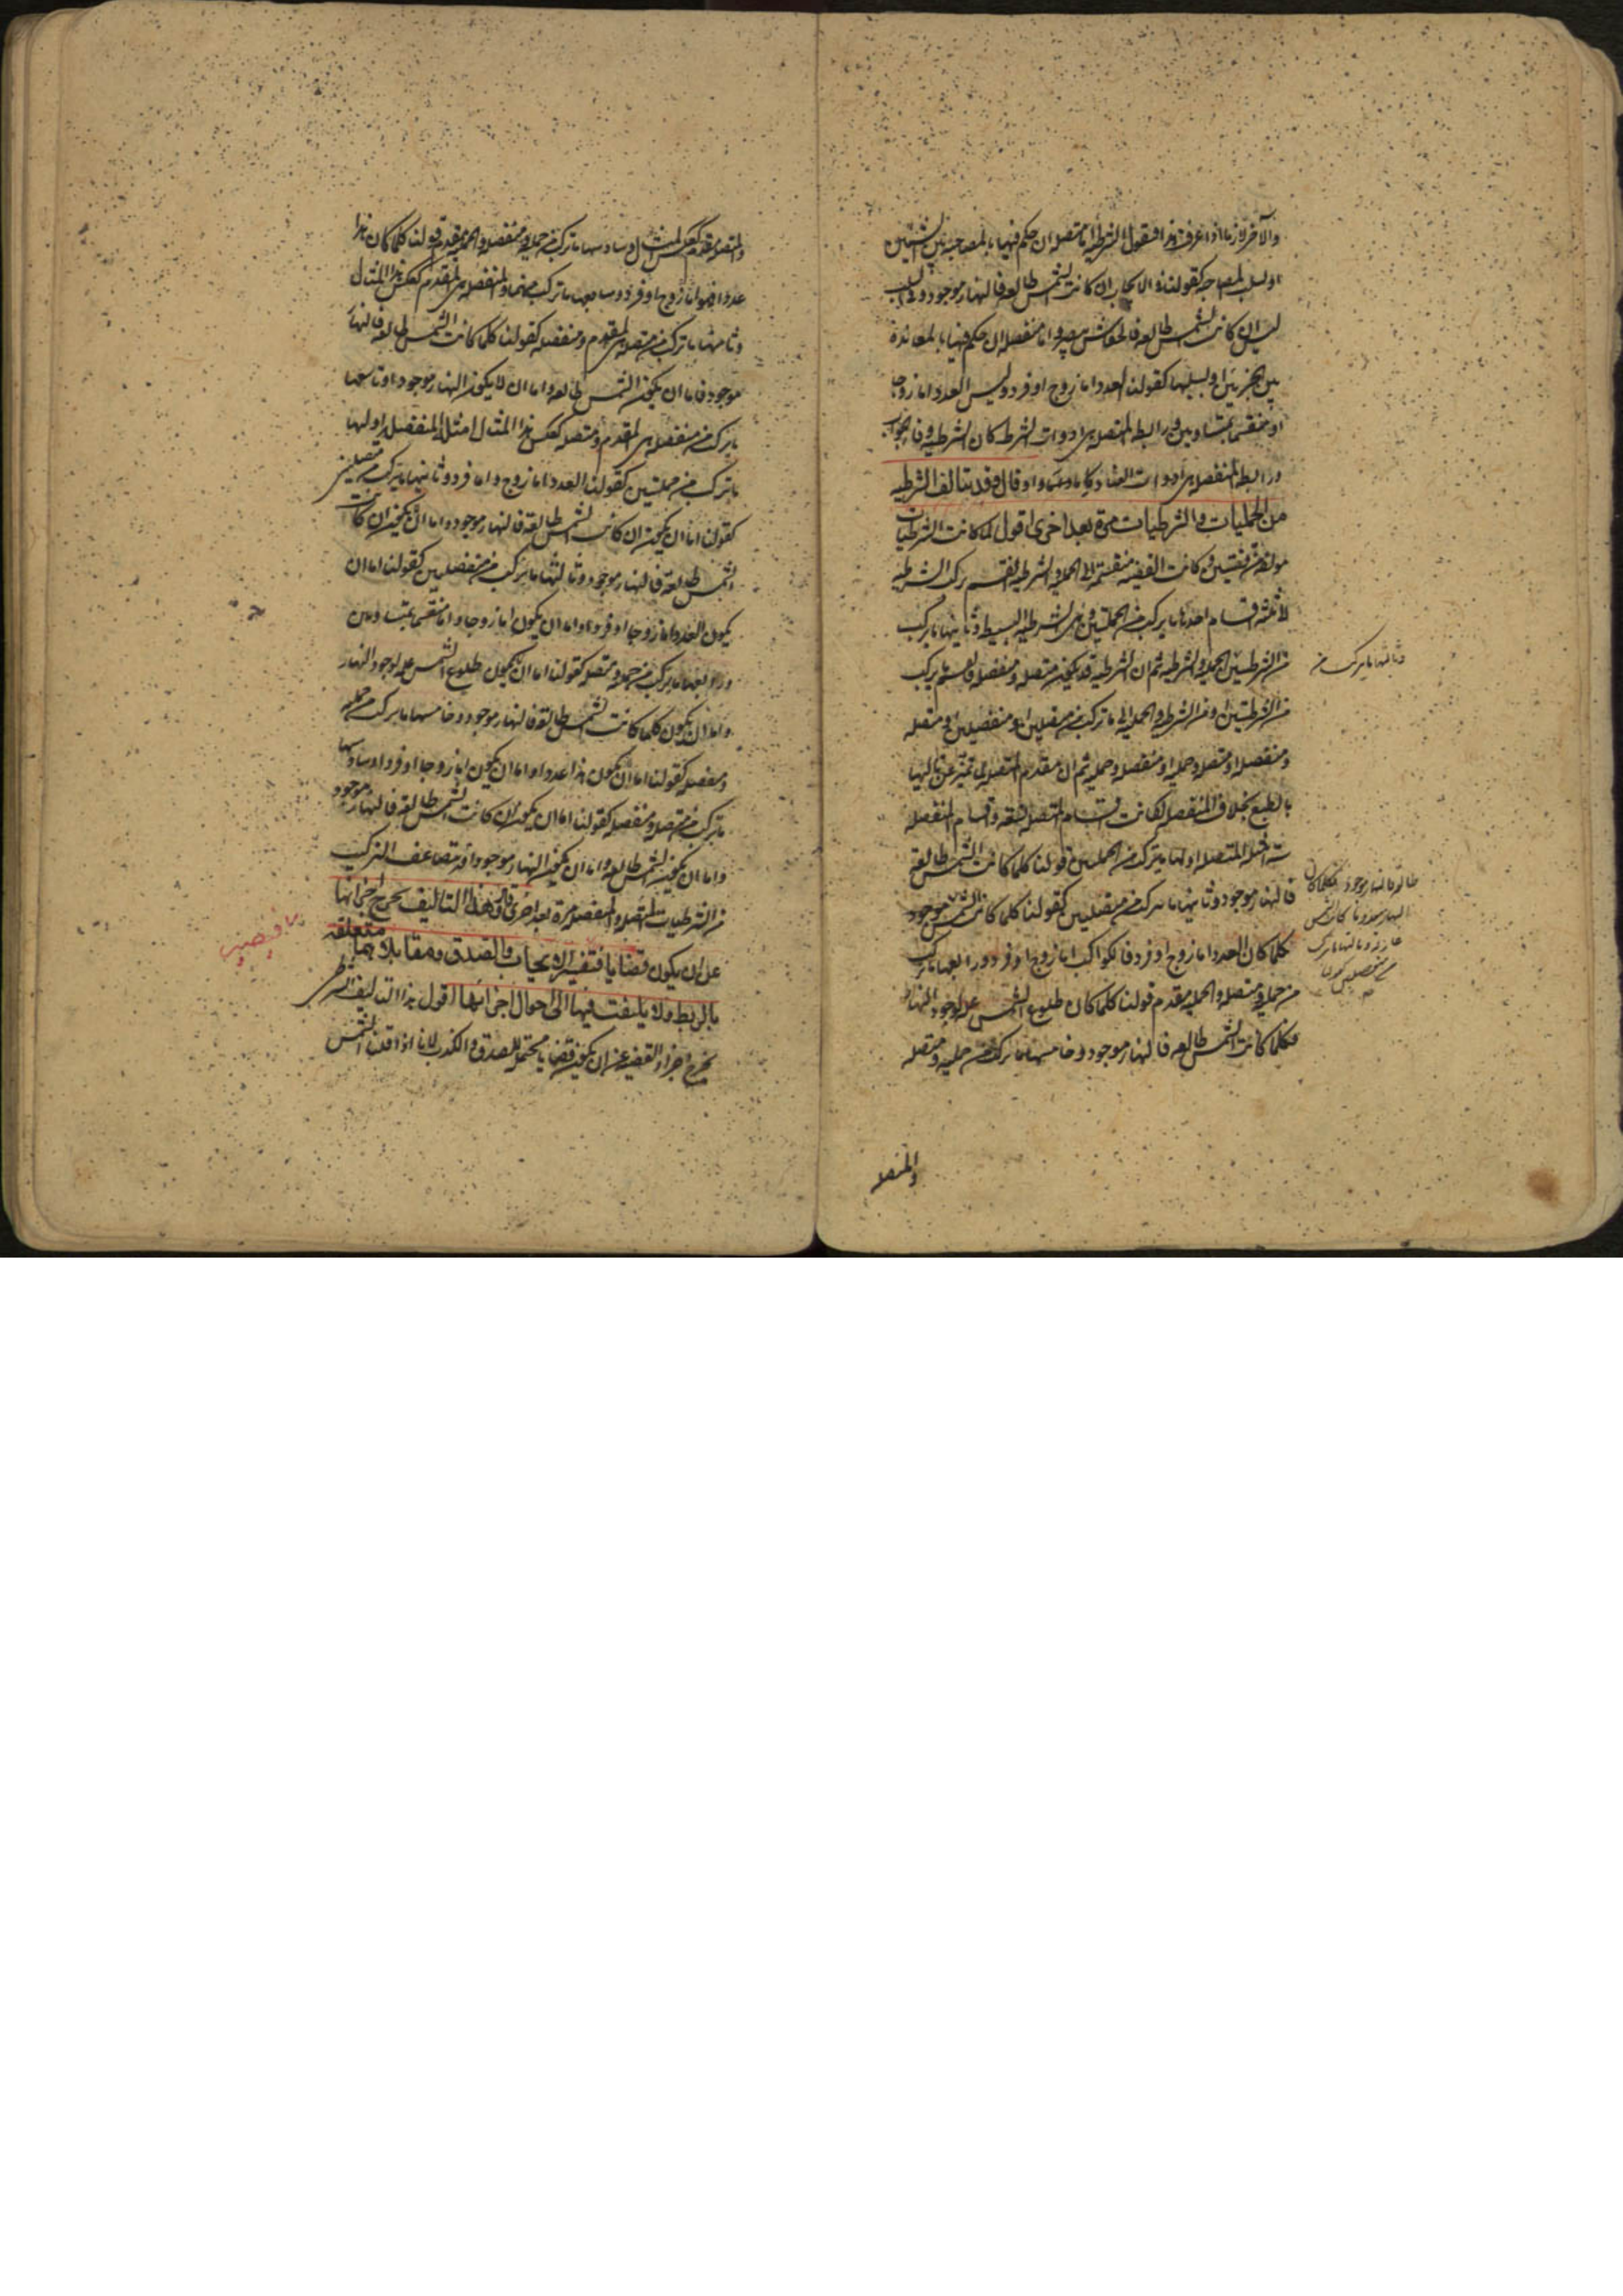 والآخر لازما اذا عرفت هذا فنقول الشرطية اما متصلة ان حكم فيها بالمصاحبة بين الشيئين
او بسلب المصاحبة كقولنا في الايجاب ان كانت الشمس طالعة فالنهار موجود وفي السلب
ليس ان كانت الشمس طالعة فالخفاش مبصر واما منفصلة ان حكم فيها بالمعاندة
بين الجزئين او بسلبها كقولنا العدد اما زوج او فرد وليس العدد اما زوجا
او منقسما بمتساويين ورابطة المتصلة هي ادوات الشرط كان الشرطية وفاء الجواب
ورابطة المنفصلة هي ادوات العناد كاما واو قال وقد يتالف الشرطية
من الحمليات والشرطيات مرة بعد اخرى اقول لما كانت الشرطيات
مولفة من قضيتين وكانت القضية منقسمة الى الحملية والشرطية انقسم تركب الشرطية
ثلاثة اقسام احدها ما يركب من الحمليتين وهي الشرطية البسيطة وثانيها ما يركب
من الشرطيتين الحملية والشرطية ثم ان الشرطية قد يكون متصلة ومنفصلة فانقسم ما يركب
من الشرطيتين او من الشرطية والحملية الى ما تركب من متصلتين او منفصلتين او متصلة
ومنفصلة او متصلة وحملية او منفصلة وحملية ثم ان مقدم المتصلة لما تميز عن تاليها
بالطبع بخلاف المنفصلة كانت اقسام المتصلة تسعة واقسام المنفصلة
ستة امثلة المتصلة اولها ما يتركب من الحمليتين قولنا كلما كانت الشمس طالعة
فالنهار موجود وثانيها ما يتركب من متصلتين كقولنا كلما كانت الشمس موجود
كلما كان العدد اما زوج او فرد فالكواكب اما زوج او فرد ورابعها ما تركب
من حملية ومتصلة والحملية مقدم قولنا كلما كان طلوع الشمس علة لوجود النهار
فكلما كانت الشمس طالعة فالنهار موجود وخامسها ما يركب من حملية ومتصلة
وثالثها ما يركب من
طالعة فالنهار موجود فكلما كان
وثالثها ما يركب
من منفصلتين كقولنا
والمتصلة
والمتصلة مقدم بعكس المثال وسادسها ما تركب من حملية ومنفصلة والحملية مقدم قولنا كلما كان هذا
عددا فهو اما زوج او فرد وسابعها ما تركب منهما والمنفصلة هي المقدم كعكس هذا المثال
وثامنها ما تركب من متصلة هي المقدم ومنفصلة كقولنا كلما كانت الشمس طالعة فالنهار
موجود فاما ان يكون الشمس طالعة واما ان لا يكون النهار موجودا وتاسعها
ما يركب من منفصلة هي المقدم ومتصلة كعكس هذا المثال امثلة المنفصلة اولها
ما تركب من حمليتين كقولنا العدد اما زوج واما فرد وثانيها ما يتركب من متصلتين
كقولنا اما ان يكون ان كانت الشمس طالعة فالنهار موجود واما ان يكون ان كانت
الشمس طالعة فالنهار موجود وثالثها ما يركب من منفصلتين كقولنا اما ان
يكون العدد اما زوجا او فردا واما ان يكون اما زوجا واما منقسما بمتساويين
ورابعها ما يركب من حملية ومتصلة كقولنا اما ان يكون طلوع الشمس علة لوجود النهار
واما ان يكون كلما كانت الشمس طالعة فالنهار موجود وخامسها ما يركب من حملية
ومنفصلة كقولنا اما ان يكون هذا عددا واما ان يكون اما زوجا او فردا وسادسها
ما يتركب من متصلة ومنفصلة كقولنا اما ان يكون ان كانت الشمس طالعة فالنهار موجود
واما ان يكون الشمس طالعة واما ان يكون النهار موجودا وقد يتضاعف التركيب
من الشرطيات المتصلة والمنفصلة مرة بعد اخرى قال وهذا التاليف يخرج اجزائها
عن ان يكون قضايا فتفسير الايجاب والصدق ومقابلاهما متعلقة
بالربط ولا يلتفت فيها الى احوال اجزائها اقول هذا التاليف الشرطي
يخرج اجزاء القضية عن ان يكون قضايا محتملة للصدق والكذب لانا اذا قلنا الشمس